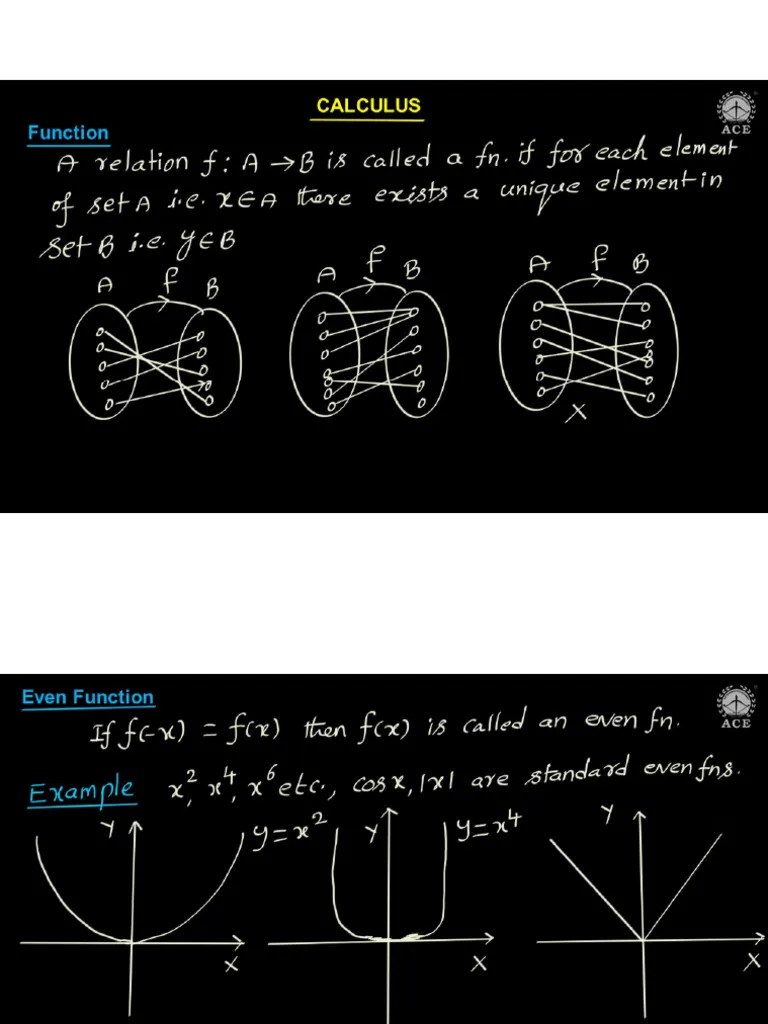 CALCULUS
ACE
Function
A relation f: A → B is called a fn. if for each element
of set A i.e. x ∈ A there exists a unique element in
set B i.e. y ∈ B
A f B
A f B
A f B
X
Even Function
ACE
If f(-x) = f(x) then f(x) is called an even fn.
Example x², x⁴, x⁶ etc., cos x, |x| are standard even fns.
Y y = x² Y y = x⁴ Y
X X X